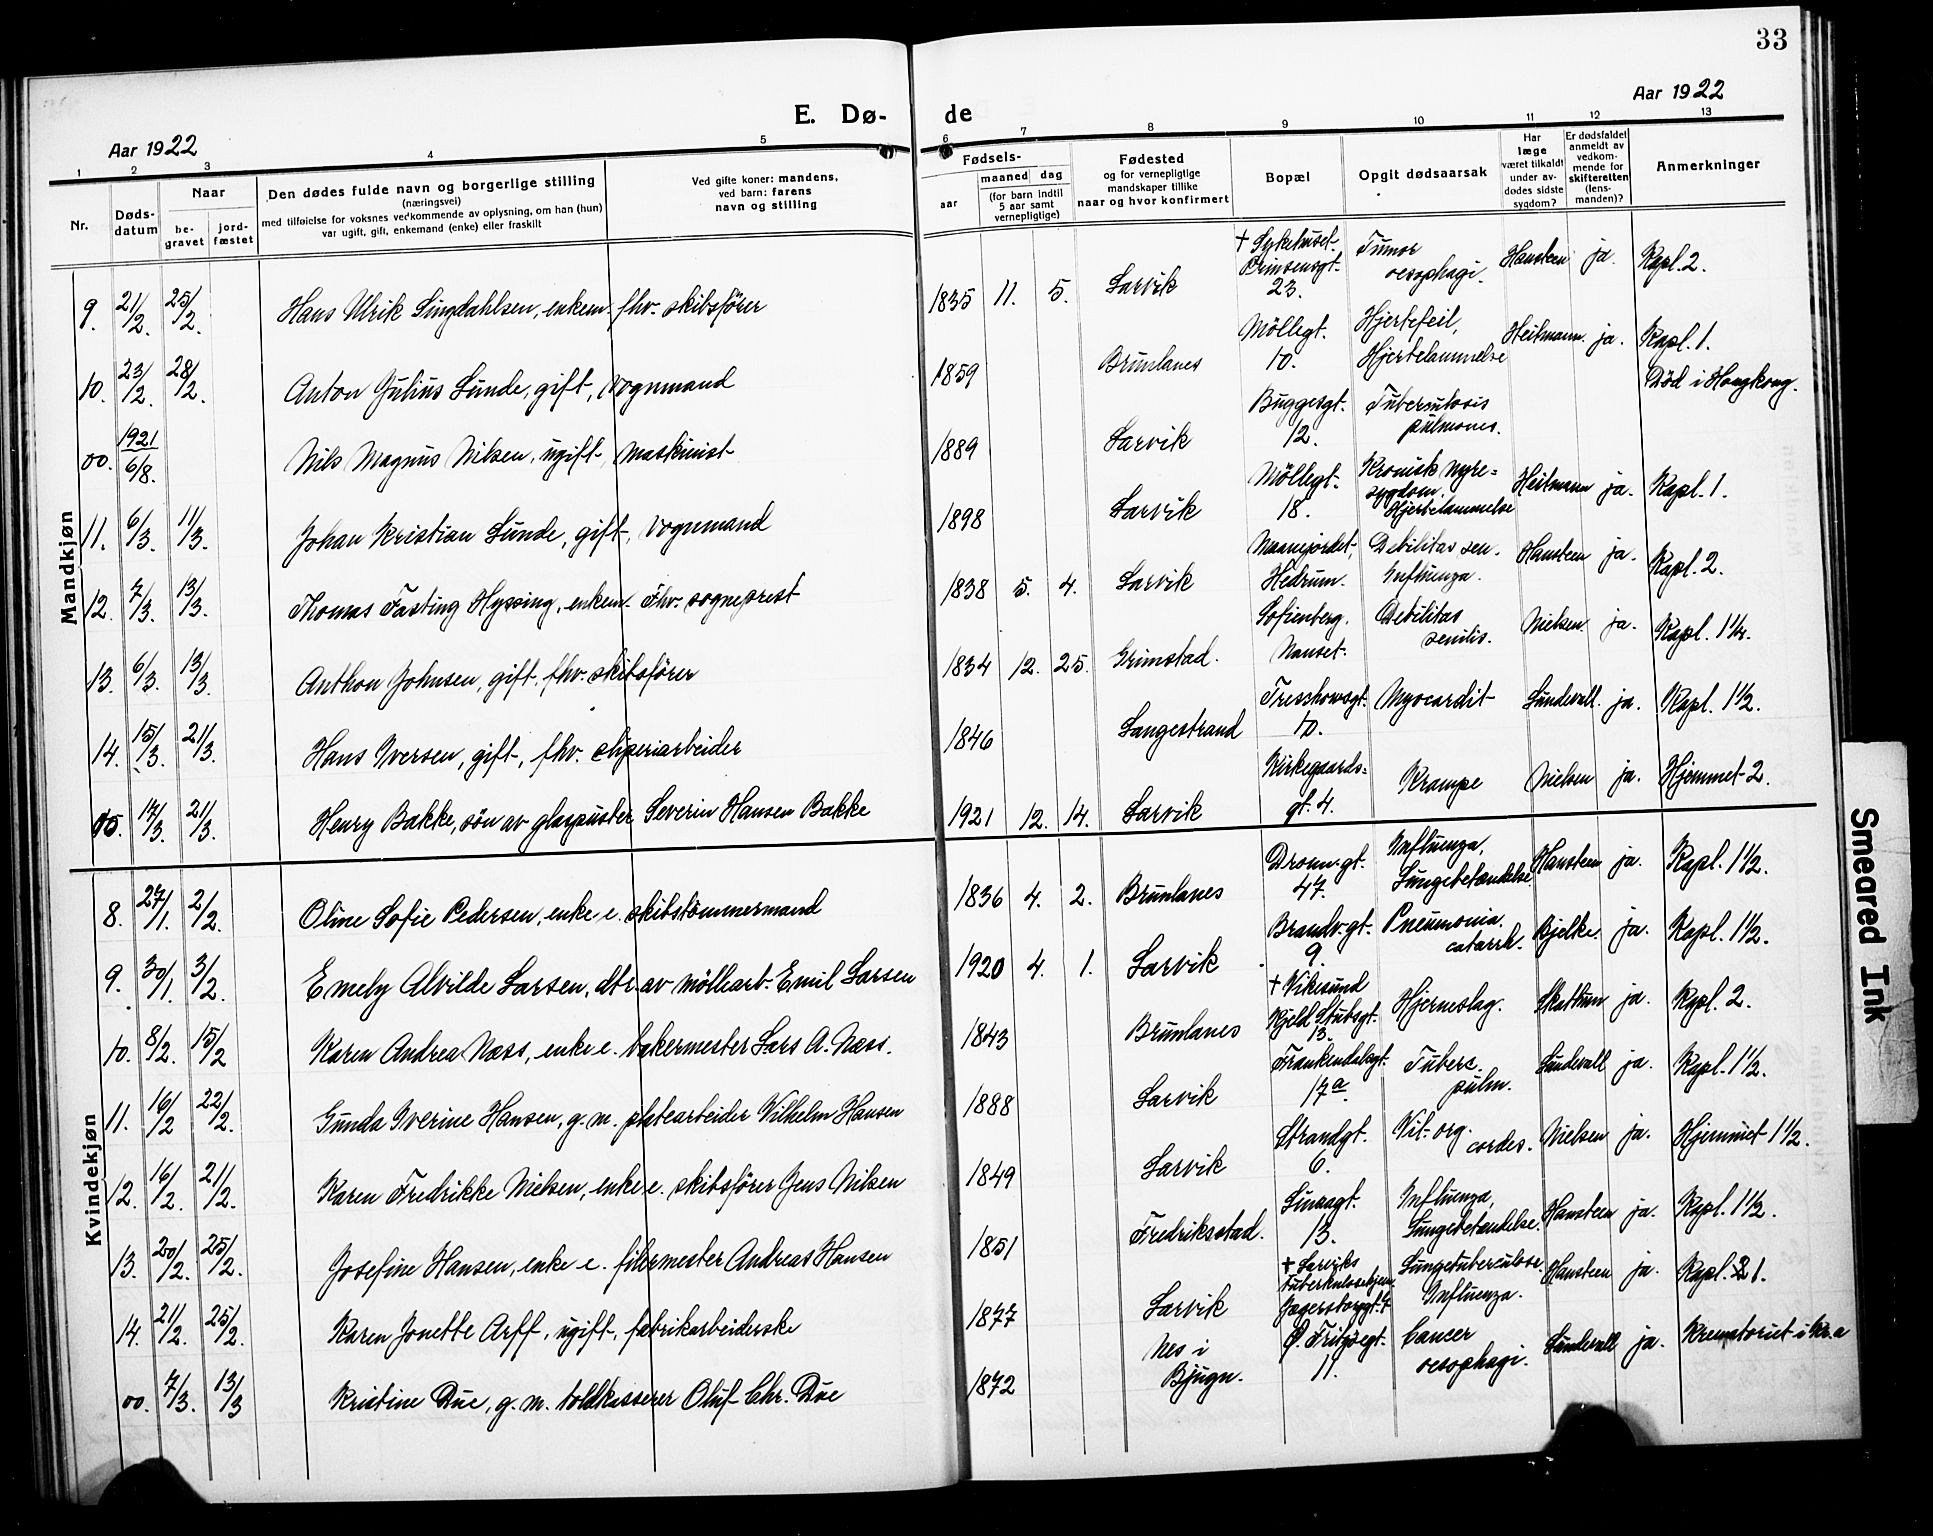 33
Aar 1922
E. Dø-
de
Aar 1922
1 2 3 4 5 6 7 8 9 10 11 12 13
Nr.
Døds-
datum
Naar
be-
gravet
jord-
fæstet
Den dødes fulde navn og borgerlige stilling
(næringsvei)
med tilføielse for voksnes vedkommende av oplysning, om han (hun)
var ugift, gift, enkemand (enke) eller fraskilt
Ved gifte koner: mandens,
ved barn: farens
navn og stilling
Fødsels-
aar
maaned dag
(for barn indtil
5 aar samt
vernepligtige)
Fødested
og for vernepligtige
mandskaper tillike
naar og hvor konfirmert
Bopæl
Opgit dødsaarsak
Har
læge
været tilkaldt
under av-
dødes sidste
sygdom?
Er dødsfaldet
anmeldt av
vedkom-
mende for
skifteretten
(lens-
manden)?
Anmerkninger
Mandkjøn
9. 21/2. 25/2. Hans Ulrik Lingdahlsen, enkem. fhv. skibsfører 1835 11. 5. Larvik † Sykehuset. Prinsensgt. 23. Tumor oesophagi. Hansteen ja. Kapl. 2.
10. 23/2. 28/2. Anton Julius Lunde, gift, vognmand 1859 Brunlanes Möllegt. 10. Hjertefeil, Hjertelammelse Heitmann. ja. Kapl. 1.
00. 1921 6/8. Nils Magnus Nilsen, ugift, maskinist 1889 Larvik Buggesgt. 12. Tuberculosis pulmones. Død i Hongkong.
11. 6/3. 11/3. Johan Kristian Lunde, gift, vognmand 1898 Larvik Möllegt. 18. Kronisk nyre= sygdom. Hjertelammelse Heitmann ja. Kapl. 1.
12. 7/3. 13/3. Thomas Fasting Hyssing, enkem. Fhv. sogneprest 1838 5. 4. Larvik Maanejordet, Hedrum. Debilitas sen. Influenza. Hansteen ja. Kapl. 2.
13. 6/3. 13/3. Anthon Johnsen, gift, fhv. skibsfører 1834 12. 25. Grimstad. Sofienberg. Nanset. Debilitas senilis. Nielsen ja. Kapl. 1 1/2.
14. 15/3. 21/3. Hans Iversen, gift, fhv. sliperiarbeider 1846 Langestrand Treschowsgt. 10. Myocardit Lundevall. ja. Kapl. 1 1/2.
15. 17/3. 21/3. Henry Bakke, sön av glaspuster Severin Hansen Bakke 1921 12. 14. Larvik Kirkegaards= gt. 4. Krampe Nielsen ja. Hjemmet 2.
Kvindekjøn
8. 27/1. 2/2. Oline Sofie Pedersen, enke e. skibstömmermand 1836 4. 2. Brunlanes Dronn. gt. 47. Influenza, Lungebetændelse Hansteen ja. Kapl. 1 1/2.
9. 30/1. 3/2. Emely Alvilde Larsen, dtr. av möllearb. Emil Larsen 1920 4. 1. Larvik Brandv. gt. 9. Pneumonia. catarrh. Bjelke. ja. Kapl. 1 1/2.
10. 8/2. 15/2 Karen Andrea Næss, enke e. bakermester Lars A. Næss. 1843 Brunlanes † Vikesund Kjeld Stubsgt. 13. Hjerneslag. Skattum ja. Kapl. 2.
11. 16/2 22/2. Gunda Iverine Hansen, g. m. platearbeider Vilhelm Hansen 1888 Larvik Frankendalsgt. 17a. Tuberc. pulm. Lundevall ja. Kapl. 1 1/2.
12. 16/2. 21/2. Karen Fredrikke Nielsen, enke e. skibsfører Jens Nilsen 1849 Larvik Strandgt. 6. Vit. org. cordes. Nielsen ja. Hjemmet 1 1/2.
13. 20/2. 25/2. Josefine Hansen, enke e. filermester Andreas Hansen 1851 Fredriksstad. Linaagt. 13. Influenza, Lungebetændelse. Hansteen ja. Kapl. 1 1/2.
14. 21/2. 25/2. Karen Jonette Arff, ugift, fabrikarbeiderske 1877 Larvik † Larviks Tuberkulosehjem. Jegersborggt. 7 Lungetuberculose. Influenza. Hansteen ja. Kapl. 1.
00. 7/3. 13/3 Kristine Due, g. m. toldkasserer Oluf Chr. Due 1872 Nes i Bjugn. Ø. Fritzøegt. 11. Cancer oesophagi. Lundevall ja. Krematoriet i Kr.a
Smeared Ink